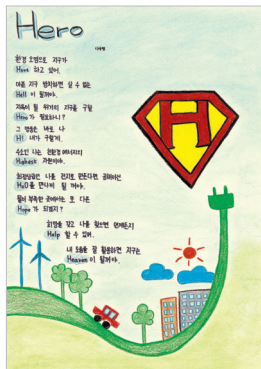 Hero
환경 오염으로 지구가
Hove 하고 있어.
아픈 지구 방치하면 살 수 없는
Hell 이 될꺼야.
지옥이 될 위기의 지구를 구할
Hero 가 필요하니?
그 영웅은 바로 나
H! 내가 구할게.
수소인 나는 친환경에너지의
Highest 자원이야.
화학상태인 나를 전지로 만든다면
H₂O를 만나게 될 꺼야.
물이 부족한 곳에서는 또 다른
Hope 가 되겠지?
희망을 갖고 나를 찾으면 언제든지
Help 할 수 있어.
내 도움을 잘 활용하면 지구는
Heaven 이 될꺼야.
H